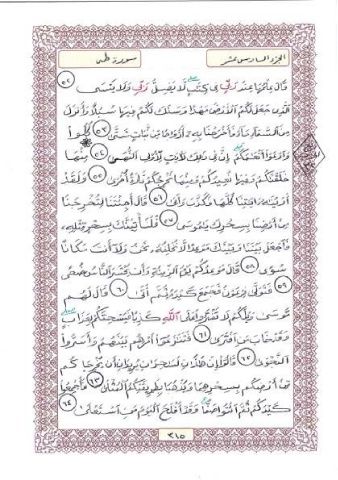 الجزء السادس عشر
سورة طه
قَالَ عِلْمُهَا عِندَ رَبِّي فِي كِتَٰبٍ لَّا يَضِلُّ رَبِّي وَلَا يَنسَى ٥٢
ٱلَّذِي جَعَلَ لَكُمُ ٱلْأَرْضَ مَهْدًا وَسَلَكَ لَكُمْ فِيهَا سُبُلًا وَأَنزَلَ
مِنَ ٱلسَّمَآءِ مَآءً فَأَخْرَجْنَا بِهِۦٓ أَزْوَٰجًا مِّن نَّبَاتٍ شَتَّىٰ ٥٣ كُلُوا۟
وَٱرْعَوْا۟ أَنْعَٰمَكُمْ إِنَّ فِي ذَٰلِكَ لَءَايَٰتٍ لِّأُو۟لِي ٱلنُّهَىٰ ٥٤ مِنْهَا
خَلَقْنَٰكُمْ وَفِيهَا نُعِيدُكُمْ وَمِنْهَا نُخْرِجُكُمْ تَارَةً أُخْرَىٰ ٥٥ وَلَقَدْ
أَرَيْنَٰهُ ءَايَٰتِنَا كُلَّهَا فَكَذَّبَ وَأَبَىٰ ٥٦ قَالَ أَجِئْتَنَا لِتُخْرِجَنَا
مِنْ أَرْضِنَا بِسِحْرِكَ يَٰمُوسَىٰ ٥٧ فَلَنَأْتِيَنَّكَ بِسِحْرٍ مِّثْلِهِۦ
فَٱجْعَلْ بَيْنَنَا وَبَيْنَكَ مَوْعِدًا لَّا نُخْلِفُهُۥ نَحْنُ وَلَآ أَنتَ مَكَانًا
سُوًى ٥٨ قَالَ مَوْعِدُكُمْ يَوْمُ ٱلزِّينَةِ وَأَن يُحْشَرَ ٱلنَّاسُ ضُحًى
٥٩ فَتَوَلَّىٰ فِرْعَوْنُ فَجَمَعَ كَيْدَهُۥ ثُمَّ أَتَىٰ ٦٠ قَالَ لَهُم
مُّوسَىٰ وَيْلَكُمْ لَا تَفْتَرُوا۟ عَلَى ٱللَّهِ كَذِبًا فَيُسْحِتَكُم بِعَذَابٍ
وَقَدْ خَابَ مَنِ ٱفْتَرَىٰ ٦١ فَتَنَٰزَعُوٓا۟ أَمْرَهُم بَيْنَهُمْ وَأَسَرُّوا۟
ٱلنَّجْوَىٰ ٦٢ قَالُوٓا۟ إِنْ هَٰذَٰنِ لَسَٰحِرَٰنِ يُرِيدَانِ أَن يُخْرِجَاكُم
مِّنْ أَرْضِكُم بِسِحْرِهِمَا وَيَذْهَبَا بِطَرِيقَتِكُمُ ٱلْمُثْلَىٰ ٦٣ فَأَجْمِعُوا۟
كَيْدَكُمْ ثُمَّ ٱئْتُوا۟ صَفًّا وَقَدْ أَفْلَحَ ٱلْيَوْمَ مَنِ ٱسْتَعْلَىٰ ٦٤
٣١٥